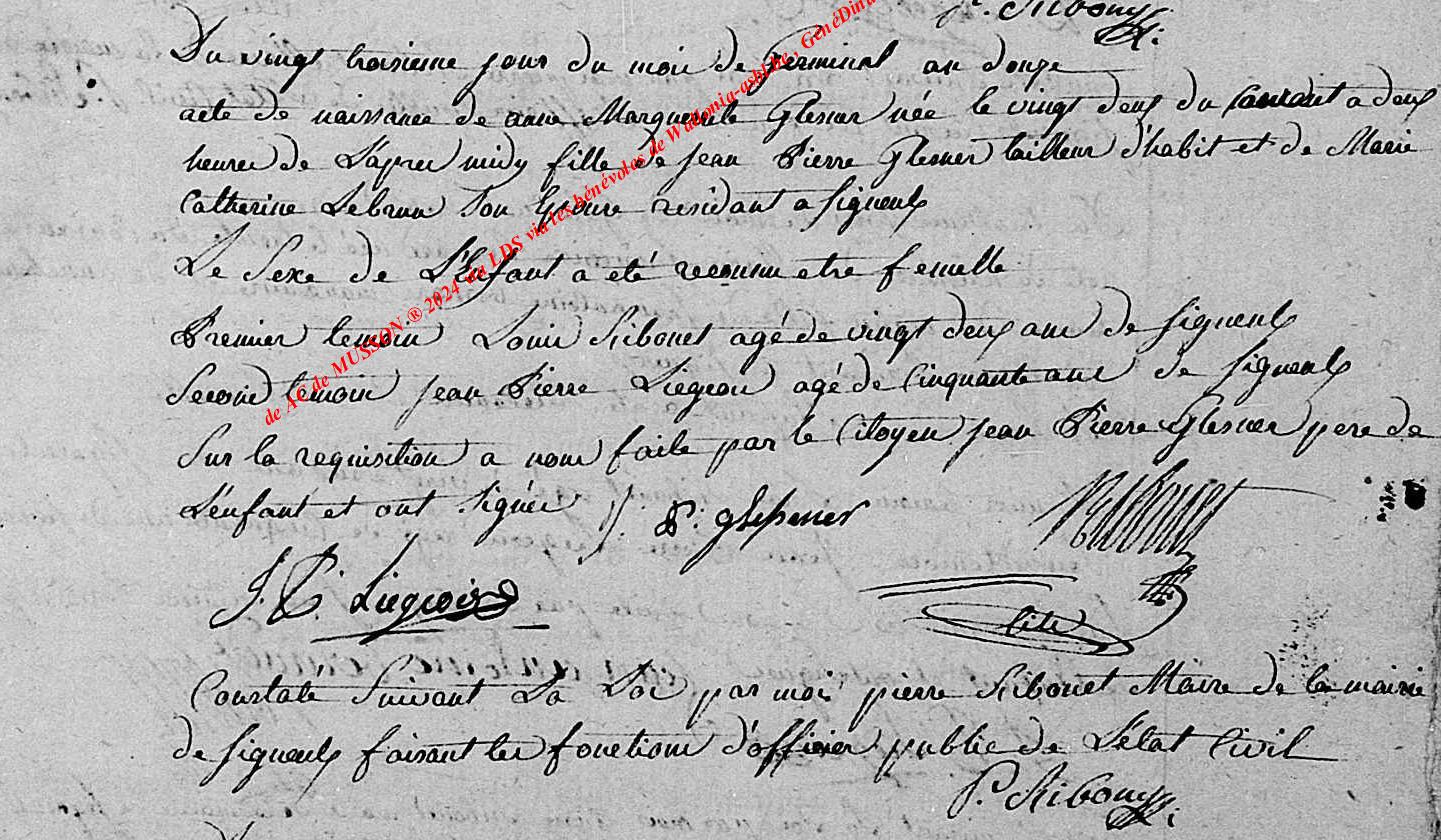 P. Ribouy
Du vingt troisieme jour du mois de Germinal an douze
acte de naissance de anne Marguerite Glesner née le vingt deux du courant a deux
heures de L'apres midy fille de jean Pierre Glesner tailleur d'habit et de Marie
Catherine Lebrun Son Epouse residant a signeulx
Le Sexe de L'Enfant a eté reconnu etre femelle
Premier temoin Louis Ribonet agé de vingt deux ans de signeulx
Second temoin jean Pierre Liegeois agé de Cinquante ans de signeulx
Sur la requisition a nous faite par le Citoyen jean Pierre Glesner pere de
L'enfant et ont signés J. P. glesener
J. P. Liegeois
Constaté Suivant La Loi par moi pierre Ribonet Maire de la mairie
de signeulx faisant les fonctions d'officier public de L'état Civil
P. Ribouy
de AC de MUSSON ® 2024 du LDS via les bénévoles de Wallonia-asbl.be, GenéDina